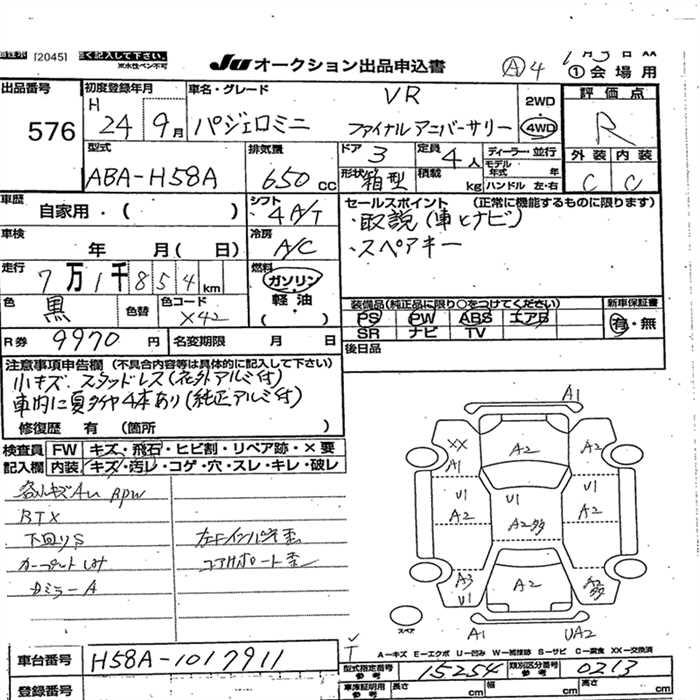 [2045]
Ju オークション出品申込書
A 4
①会場用
出品番号
576
初度登録年月
H 24年9月
車名・グレード
VR
パジェロミニ ファイナルアニバーサリー
2WD
4WD
評価点
R
外装 内装
C C
型式
ABA-H58A
排気量
650cc
ドア 3
形状 箱型
定員 4人
積載 kg
ディーラー・並行
モデル年式 年
ハンドル 左・右
車歴
自家用・( )
シフト
4 A/T
セールスポイント (正常に機能するものに限ります)
・取説(車とナビ)
・スペアキー
車検
年 月( 日)
冷房
A/C
走行
7万1千854km
燃料
ガソリン
軽油
( )
色
黒
色替
色コード
X42
装備品(純正品に限り○をつけてください)
PS PW ABS エアB
SR ナビ TV
新車保証書
有・無
R券 9970円
名変期限 月 日
後日品
注意事項申告欄 (不具合内容等は具体的に記入して下さい)
小キズ、スタッドレス(社外アルミ付)
車内に夏タイヤ4本あり(純正アルミ付)
修復歴 有 (箇所 )
検査員記入欄
FW キズ・飛石・ヒビ割・リペア跡・×要
内装 キズ・汚レ・コゲ・穴・スレ・キレ・破レ
RTX
下回りS
左Fインパネ歪
コアサポート歪
A1
XX
A1
A2
A2
U1
A2
U1
A2多
U1
A2
A3
U1
A2
A2多
A1
UA2
スペア
A-キズ E-エクボ U-凹み W-補修跡 S-サビ C-腐食 XX-交換済
車台番号
H58A-1017911
型式指定番号
参考
15254
類別区分番号
参考
0213
登録番号
車庫証明用
参考
長さ cm
幅 cm
高さ cm